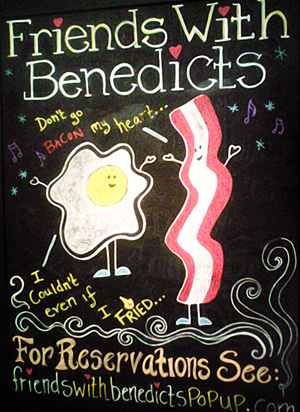 Friends With
Benedicts
Don't go
BACON my heart...
I
Couldn't
even if
I FRIED...
For Reservations See:
friendswithbenedictsPOPUP.com